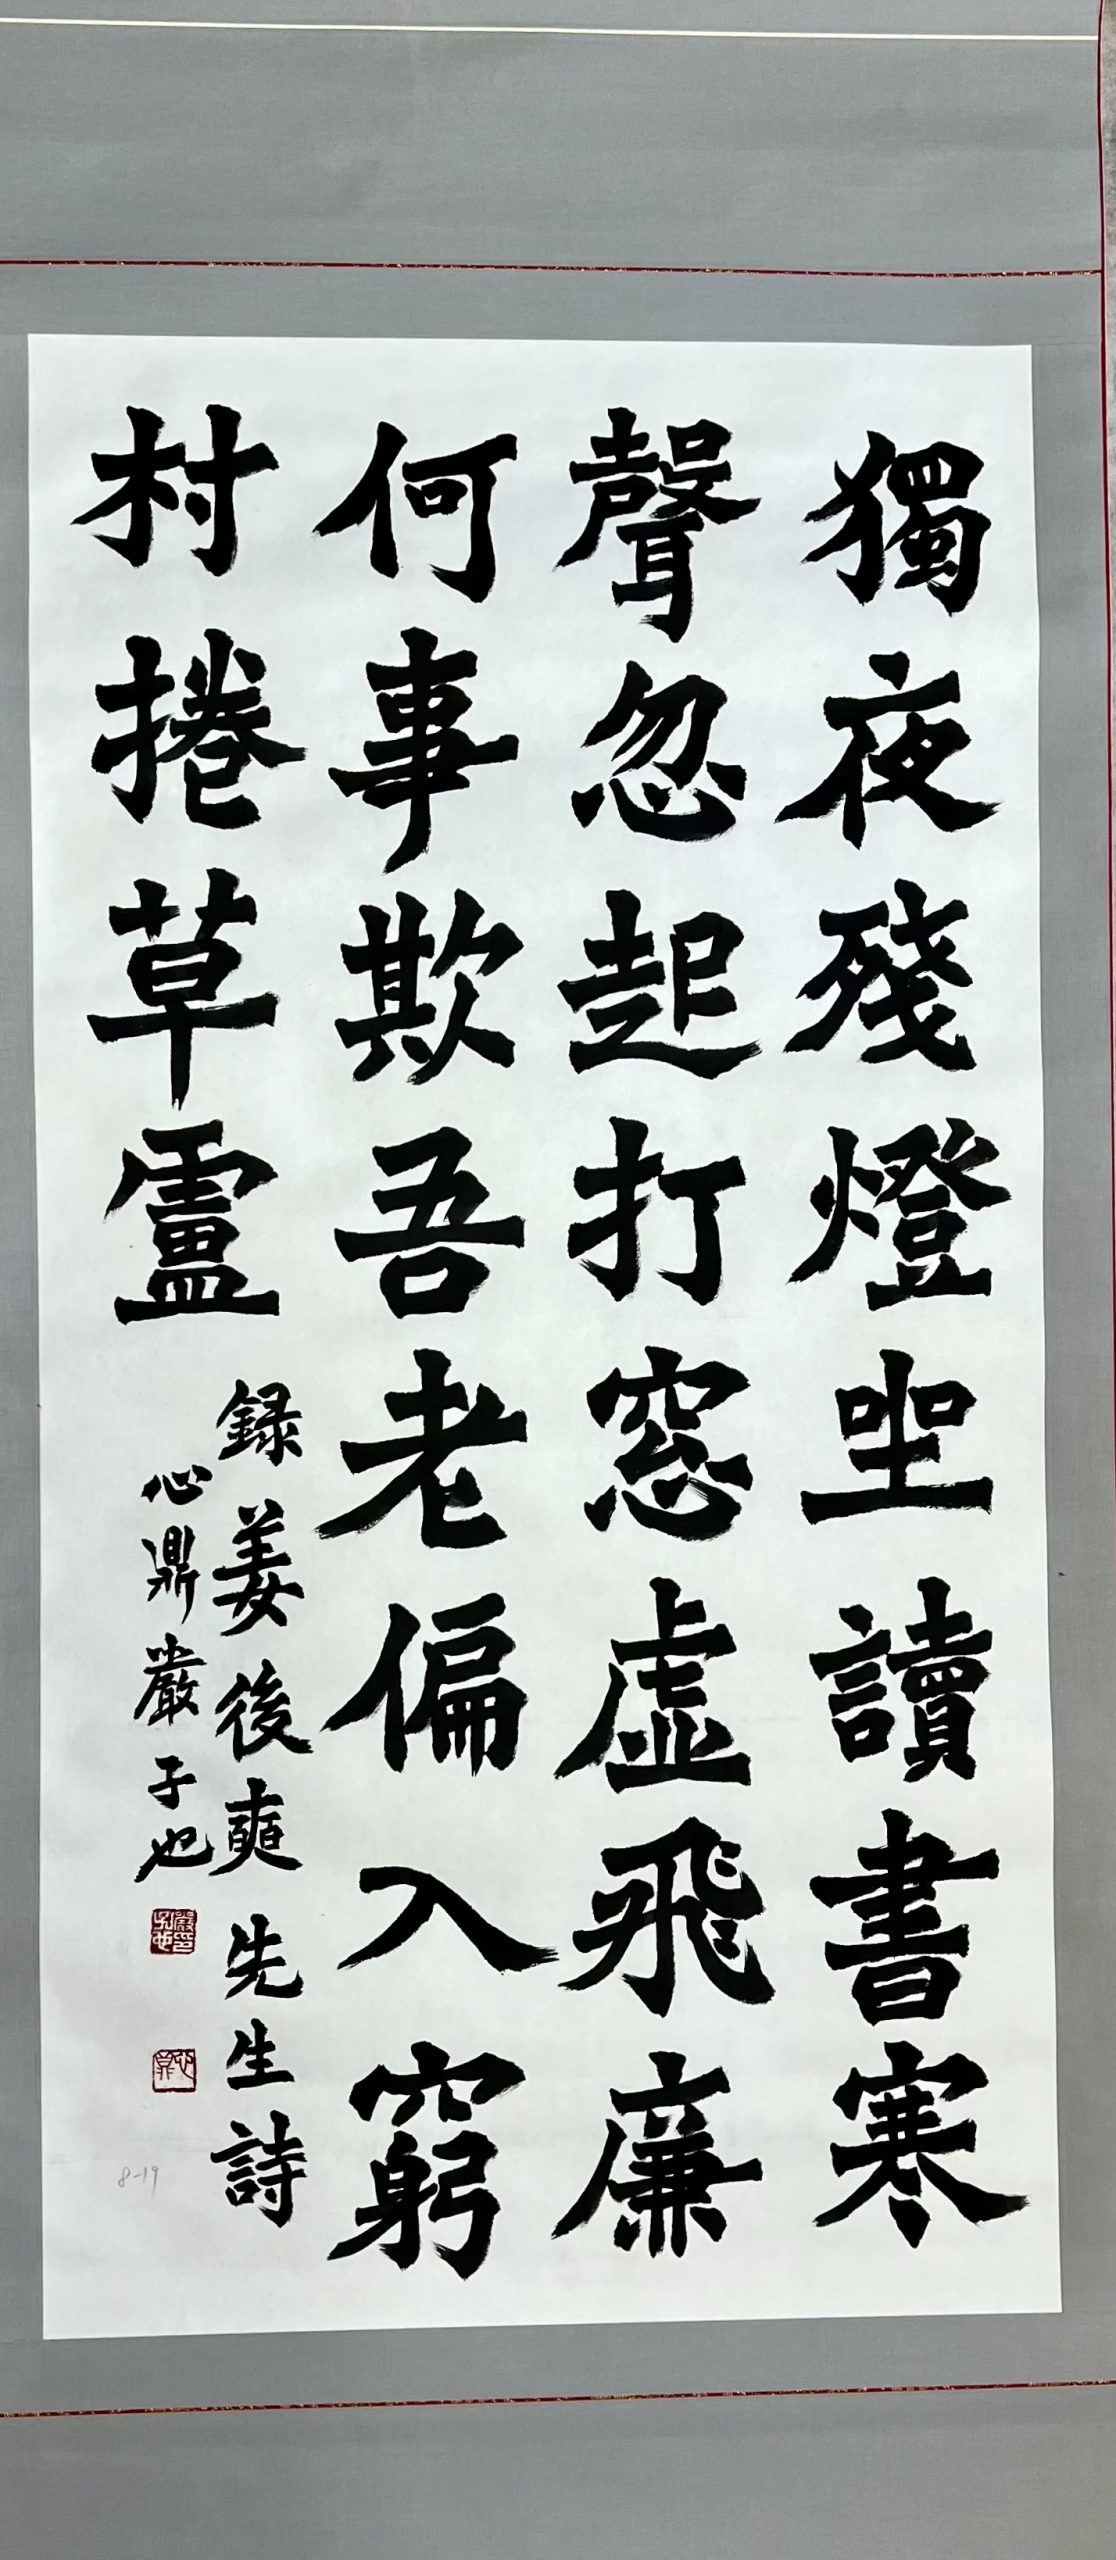 獨夜殘燈坐讀書寒
聲忽起打窓虛飛廉
何事欺吾老偏入窮
村捲草盧
録姜後奭先生詩
心鼎嚴子也
8-19